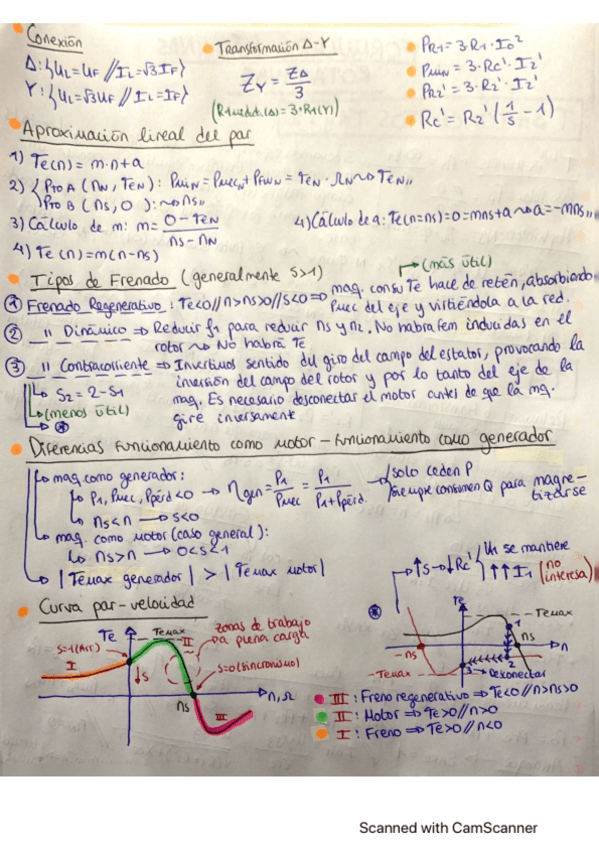 Conexión
Δ: {UL=UF // IL=√3IF}
Y: {UL=√3UF // IL=IF}
Transformación Δ-Y
ZY = ZΔ/3
(R1medida(Δ)=3·R1(Y))
PR1=3·R1·I0²
PmiN=3·Rc'·I2'
PR2'=3·R2'·I2'
Rc'=R2'(1/s-1)
Aproximación lineal del par
1) Te(n)=m·n+a
2) {Pto A (nN, TeN): PmiN=PmecN+PFWN=TeN·ΩN→TeN,,
Pto B (ns, 0): →ns,,
3) Cálculo de m: m= 0-TeN / ns-nN
4) Cálculo de a: Te(n=ns)=0=mns+a→a=-mns,,
4) Te(n)=m(n-ns)
Tipos de Frenado (generalmente s>1)
(más útil)
① Frenado Regenerativo: Te<0//n>ns>0//s<0⇒ maq. consu Te hace de retén, absorbiendo
Pmec del eje y virtiéndola a la red.
② __ " Dinámico ⇒ Reducir f1 para reducir ns y n2. No habra fem inducidas en el
rotor → No habrá Te
③ __ " Contracorriente ⇒ Invertimos sentido del giro del campo del estator, provocando la
inversión del campo del rotor y por lo tanto del eje de la
maq. Es necesario desconectar el motor antes de que la mq.
gire inversament
S2=2-S1
(menos útil)
⊛
Diferencias funcionamiento como motor-funcionamiento como generador
maq como generador:
P1, Pmec, Ppérd<0 → ηgen= P1/Pmec = P1/P1+Ppérd. → solo ceden P
siempre consumen Q para magne-
tizarse
ns<n → s<0
maq. como motor (caso general):
ns>n → 0<s<1
|Temax generador| > |Temax motor|
↑s→↓Rc' / Un se mantiere
↑↑I1 (no
interesa)
Curva par-velocidad
Te
Temax
zonas de trabajo
pa plena carga
s=1(Arr)
I
↓s
II
s=0(sincronismo)
n,Ω
ns
III
⊛
Te
Temax
1
ns
-ns
n
2
3
-Temax
Desconectar
III: Freno regenerativo⇒Te<0//n>ns>0
II: Motor⇒Te>0//n>0
I: Freno⇒Te>0//n<0
Scanned with CamScanner